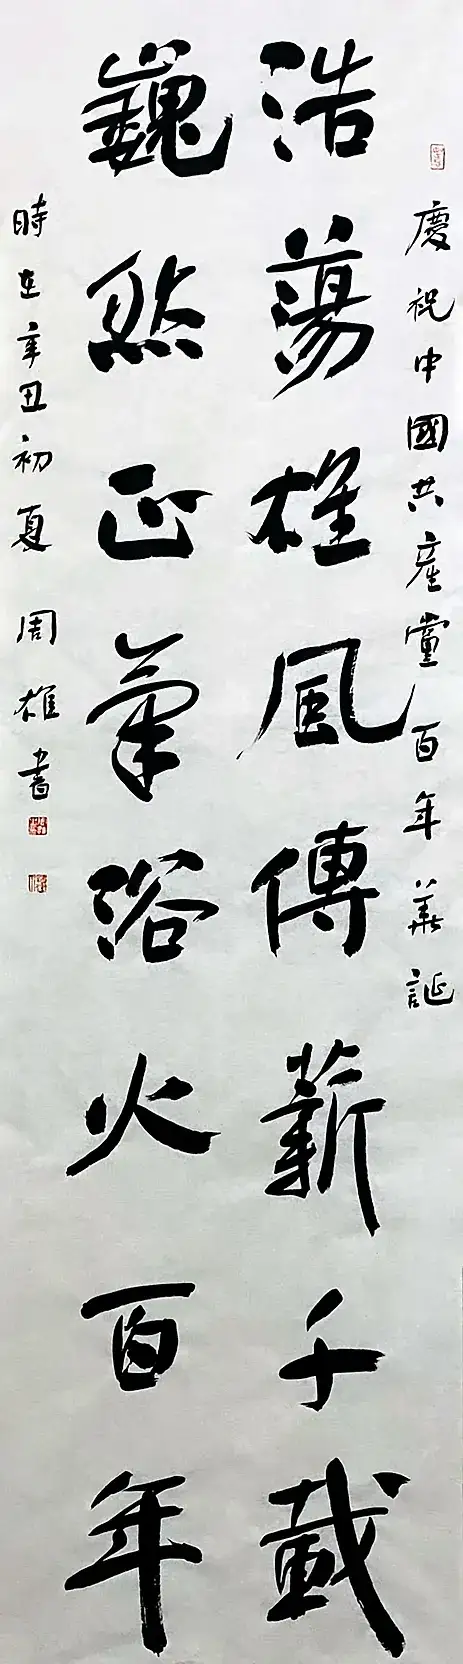 慶祝中國共産黨百年華誕
浩蕩雄風傳薪千載
巍然正氣浴火百年
時在辛丑初夏 周雄書